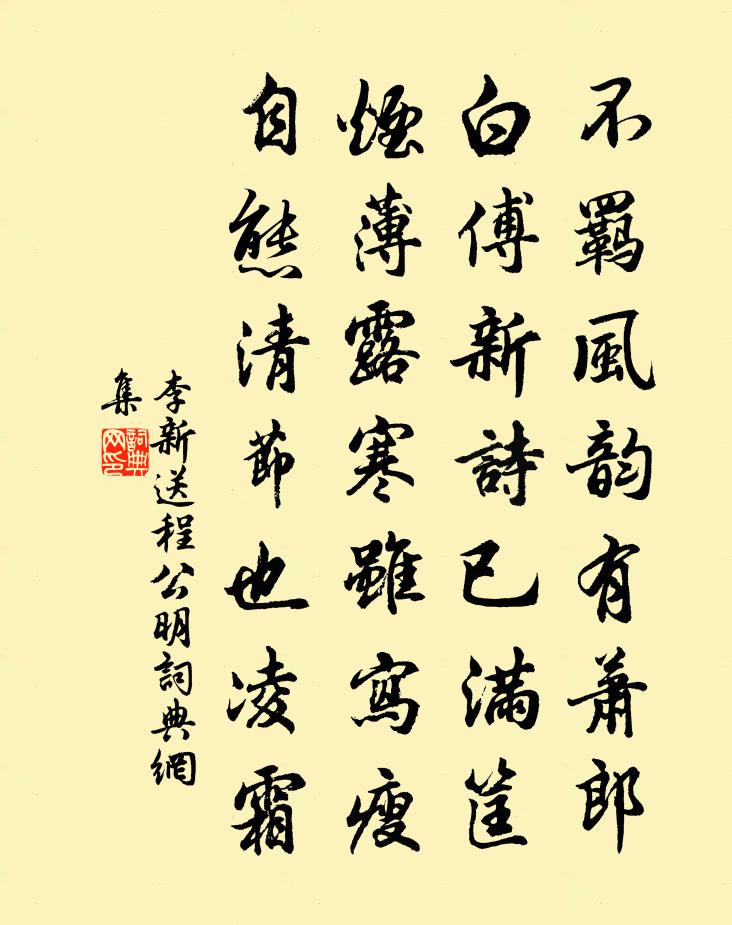 不羈風韵有蕭郎
白傅新詩已滿筐
煙薄露寒雖寫瘦
自態清節也凌霜
李新送程公明詞典網
集
詞典
网印